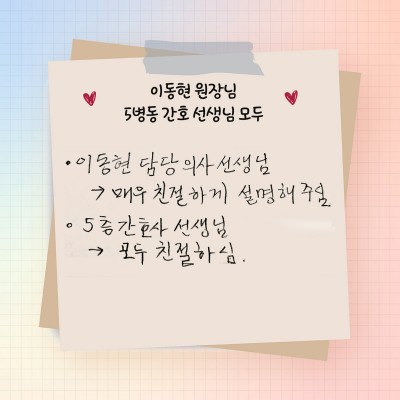 이동현 원장님
5병동 간호 선생님 모두
• 이동현 담당의사 선생님
→ 매우 친절하게 설명해 주심
• 5층 간호사 선생님
→ 모두 친절하심.